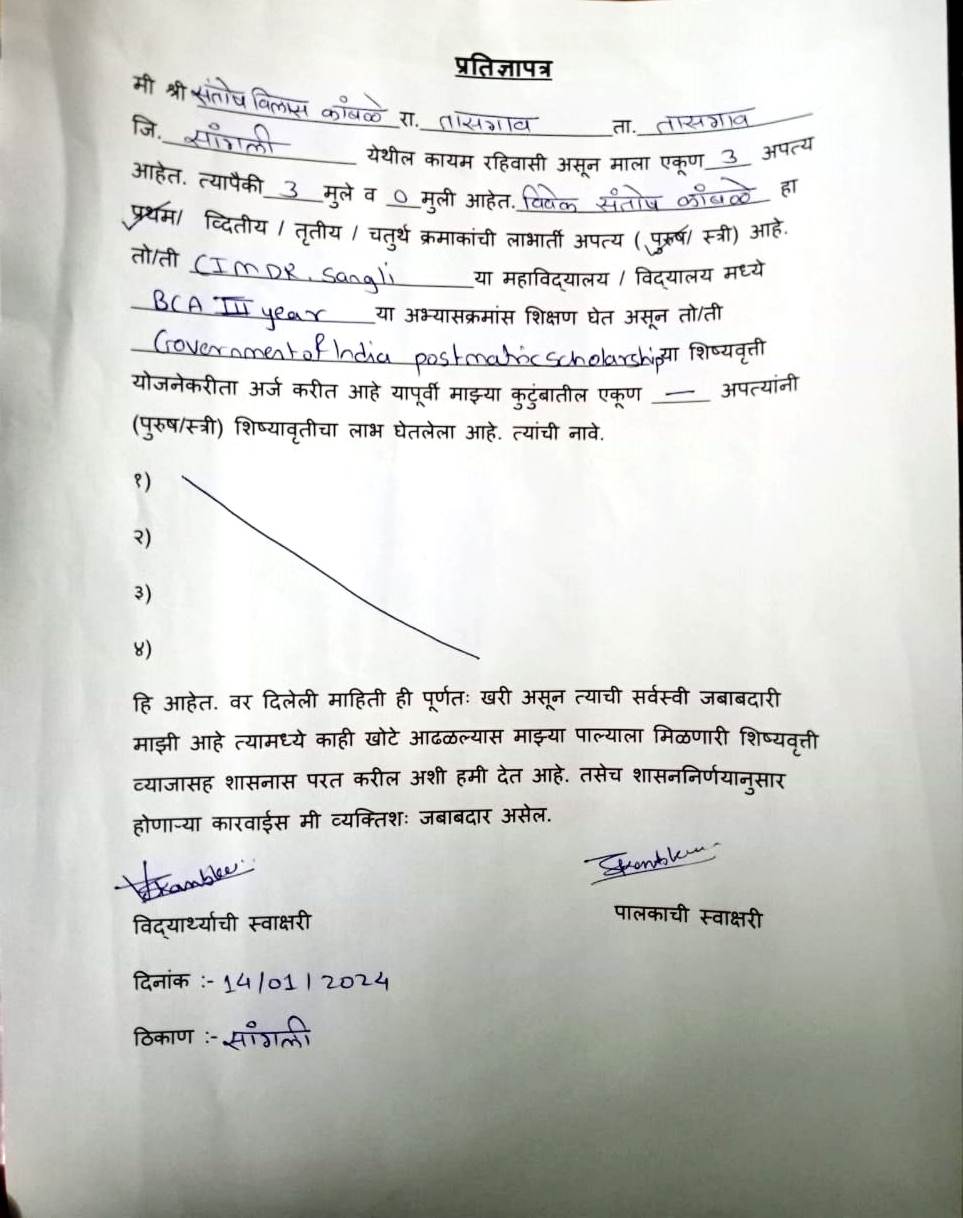 प्रतिज्ञापत्र
मी श्री संतोष विलास कांबळे रा. तासगाव ता. तासगाव
जि. सांगली येथील कायम रहिवासी असून माला एकूण 3 अपत्य
आहेत. त्यापैकी 3 मुले व 0 मुली आहेत. विवेक संतोष कांबळे हा
प्रथम/ व्दितीय / तृतीय / चतुर्थ क्रमाकांची लाभार्ती अपत्य ( पुरुष/ स्त्री) आहे.
तो/ती CIMDR, Sangli या महाविद्यालय / विद्यालय मध्ये
BCA III year या अभ्यासक्रमांस शिक्षण घेत असून तो/ती
Government of India postmatric scholarship या शिष्यवृत्ती
योजनेकरीता अर्ज करीत आहे यापूर्वी माझ्या कुटुंबातील एकूण — अपत्यांनी
(पुरुष/स्त्री) शिष्यावृतीचा लाभ घेतलेला आहे. त्यांची नावे.
१)
२)
३)
४)
हि आहेत. वर दिलेली माहिती ही पूर्णतः खरी असून त्याची सर्वस्वी जबाबदारी
माझी आहे त्यामध्ये काही खोटे आढळल्यास माझ्या पाल्याला मिळणारी शिष्यवृत्ती
व्याजासह शासनास परत करील अशी हमी देत आहे. तसेच शासननिर्णयानुसार
होणाऱ्या कारवाईस मी व्यक्तिशः जबाबदार असेल.
विद्यार्थ्याची स्वाक्षरी पालकाची स्वाक्षरी
दिनांक :- 14/01/2024
ठिकाण :- सांगली